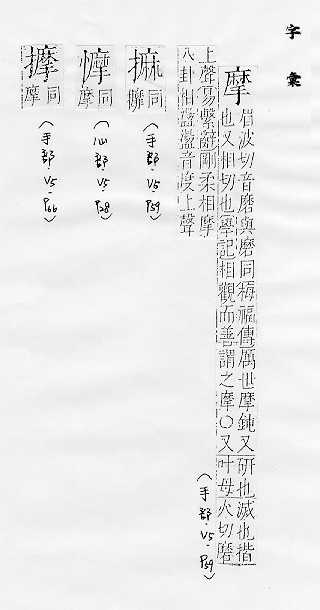 字彙
摩
眉波切音磨與磨同梅福傳厲世摩鈍又研也滅也揩
也又相切也學記相觀而善謂之摩○又叶母火切磨
上聲易繫辭剛柔相摩
八卦相盪盪音度上聲
(手部·V5·P59)
同摩
(手部·V5·P59)
同摩
(心部·V5·P38)
擵
同摩
(手部·V5·P66)